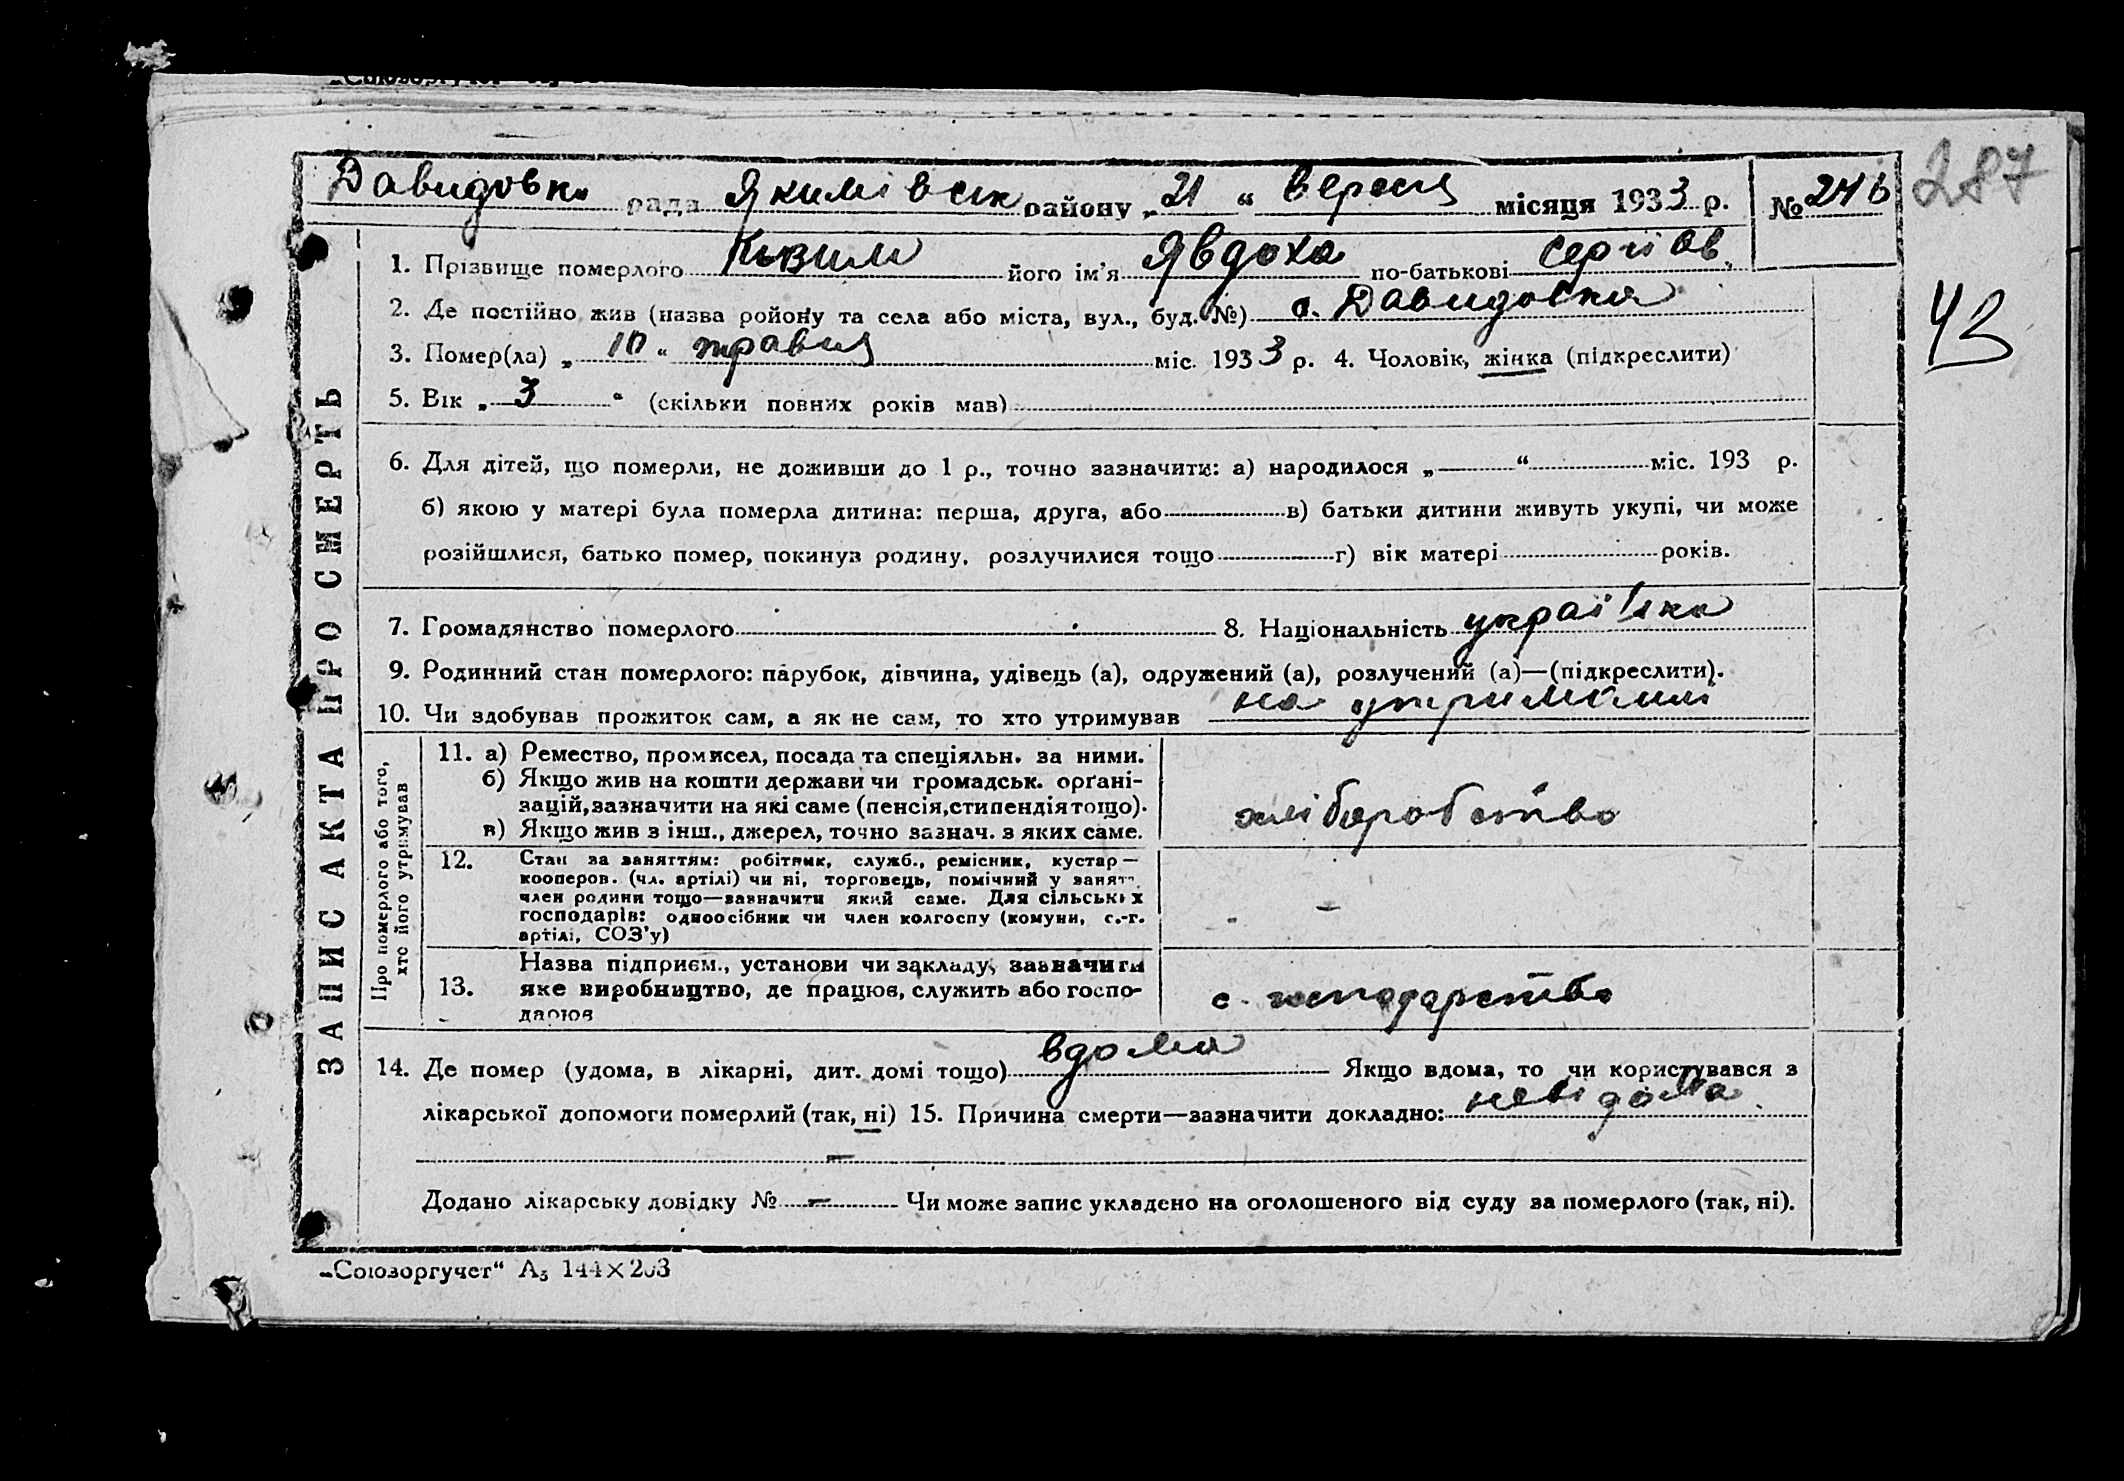 287
Давидовк. рада Якимівськ району „21“ вересня місяця 1933 р. № 246
1. Прізвище померлого його ім’я Явдоха по-батькові Сергіїв.
2. Де постійно жив (назва ройону та села або міста, вул., буд. №) с. Давидовка
3. Помер(ла) „10“ травня міс. 1933 р. 4. Чоловік, жінка (підкреслити)
43
5. Вік „3“ (скільки повних років мав)
6. Для дітей, що померли, не доживши до 1 р., точно зазначити: а) народилося „ “ міс. 193 р.
б) якою у матері була померла дитина: перша, друга, або в) батьки дитини живуть укупі, чи може
розійшлися, батько помер, покинув родину, розлучилися тощо г) вік матері років.
7. Громадянство померлого 8. Національність українка
9. Родинний стан померлого: парубок, дівчина, удівець (а), одружений (а), розлучений (а)—(підкреслити).
10. Чи здобував прожиток сам, а як не сам, то хто утримував на утриманні
11. а) Ремество, промисел, посада та спеціяльн. за ними.
б) Якщо жив на кошти держави чи громадськ. орґані-
зацій, зазначити на які саме (пенсія, стипендія тощо).
в) Якщо жив з інш., джерел, точно зазнач. з яких саме.
хліборобство
12. Стан за заняттям: робітник, служб., ремісник, кустар—
кооперов. (чл. артілі) чи ні, торговець, помічний у занятт.
член родини тощо—зазначити який саме. Для сільських
господарів: одноосібник чи член колгоспу (комуни, с.-г.
артілі, СОЗ’у)
–
13. Назва підприєм., установи чи закладу, зазначити
яке виробництво, де працює, служить або госпо-
дарює
с. господарство
Про померлого або того,
хто його утримував
14. Де помер (удома, в лікарні, дит. домі тощо) вдома Якщо вдома, то чи користувався з
лікарської допомоги померлий (так, ні) 15. Причина смерти—зазначити докладно: невідома
–
Додано лікарську довідку № – Чи може запис укладено на оголошеного від суду за померлого (так, ні).
ЗАПИС АКТА ПРО СМЕРТЬ
„Союзоргучет“ А₅ 144×203